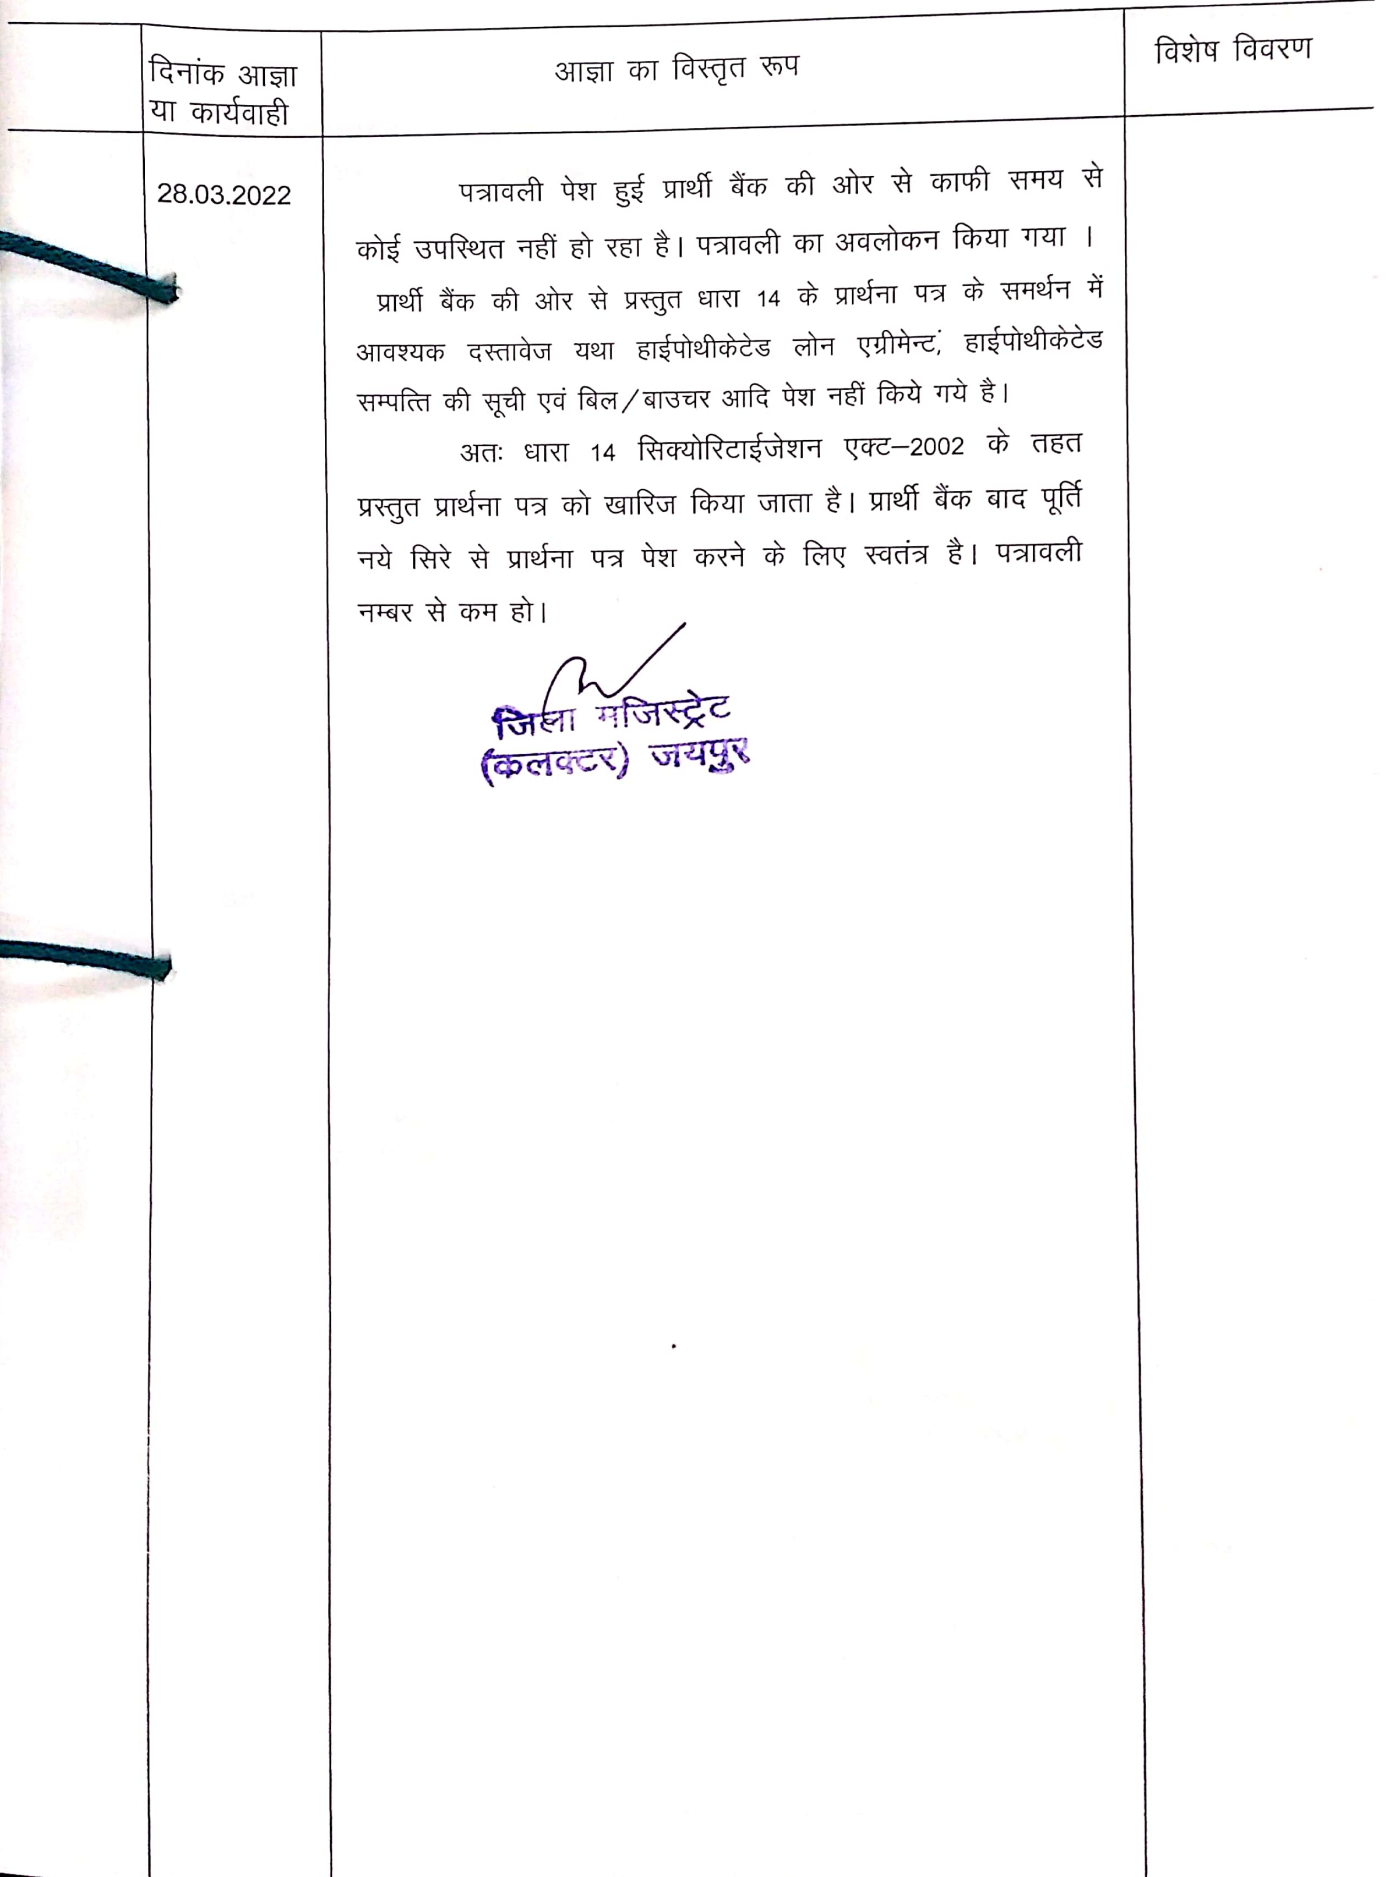 दिनांक आज्ञा
या कार्यवाही
आज्ञा का विस्तृत रूप
विशेष विवरण
28.03.2022
पत्रावली पेश हुई प्रार्थी बैंक की ओर से काफी समय से
कोई उपस्थित नहीं हो रहा है। पत्रावली का अवलोकन किया गया ।
प्रार्थी बैंक की ओर से प्रस्तुत धारा 14 के प्रार्थना पत्र के समर्थन में
आवश्यक दस्तावेज यथा हाईपोथीकेटेड लोन एग्रीमेन्टं, हाईपोथीकेटेड
सम्पत्ति की सूची एवं बिल/बाउचर आदि पेश नहीं किये गये है।
अतः धारा 14 सिक्योरिटाईजेशन एक्ट–2002 के तहत
प्रस्तुत प्रार्थना पत्र को खारिज किया जाता है। प्रार्थी बैंक बाद पूर्ति
नये सिरे से प्रार्थना पत्र पेश करने के लिए स्वतंत्र है। पत्रावली
नम्बर से कम हो।
जिला मजिस्ट्रेट
(कलक्टर) जयपुर